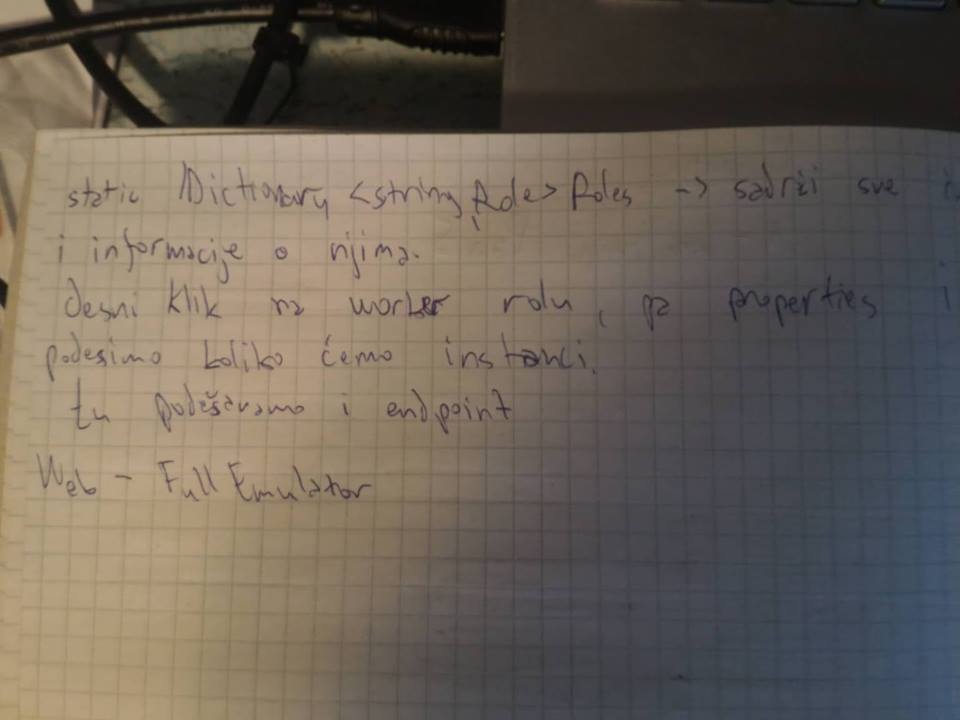 static IDictionary <string, Role> Roles -> sadrži sve
i informacije o njima.
desni klik na worker rolu, pa properties i
podesimo koliko ćemo instanci.
tu podešavamo i endpoint
Web - Full Emulator